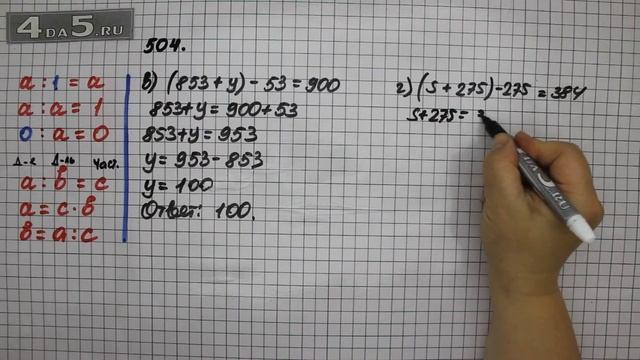 4DA5.RU
504.
a : 1 = a
a : a = 1
0 : a = 0
Д-е Д-ль Част.
a : в = c
a = c · в
в = a : c
в) (853 + y) - 53 = 900
853 + y = 900 + 53
853 + y = 953
y = 953 - 853
y = 100
Ответ: 100.
г) (S + 275) - 275 = 384
S + 275 = 3